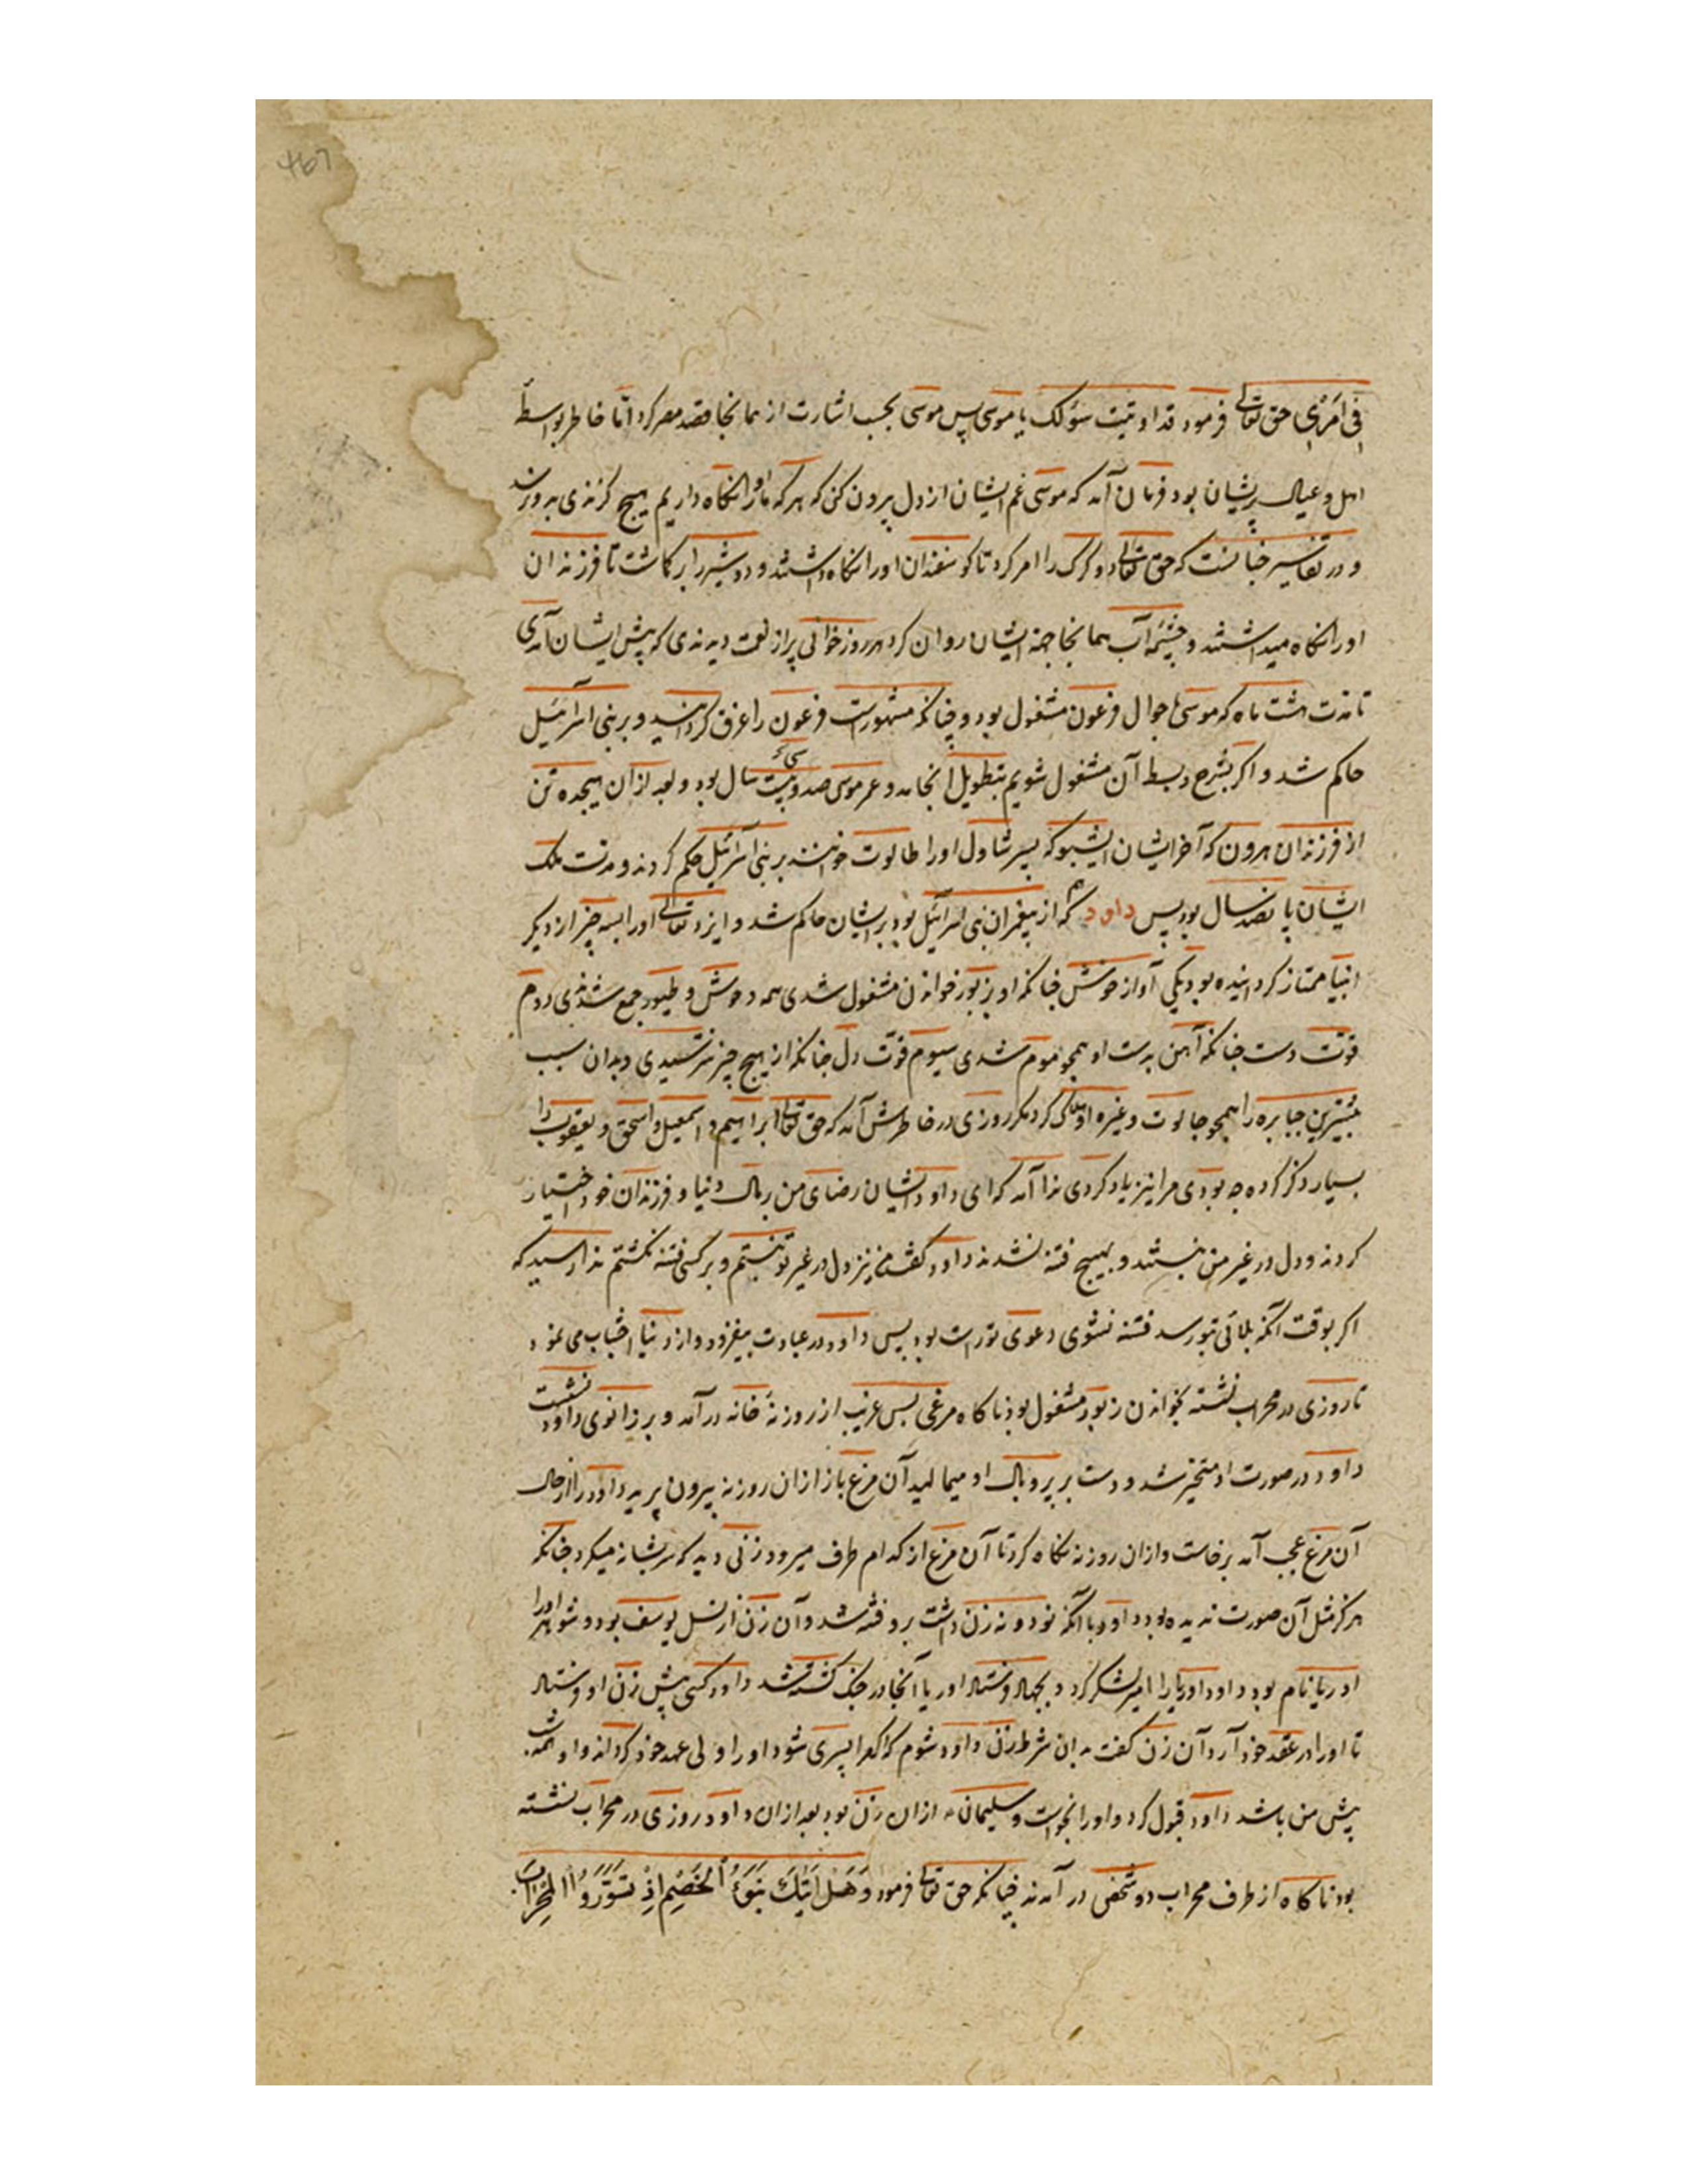 فِی اَمْرِی حق تعالی فرمود قد اوتیت سؤلک یا موسی پس موسی بحسب اشارت از همانجا قصد مصر کرد امّا خاطر بواسطهٔ
اهل و عیال پریشان بود فرمان آمد که موسی غم ایشان از دل بیرون کن که هر که ما او را نکاه داریم هیچ کزندی بدو نرسد
و در تفاسیر چنانست که حق تعالی دو کرک را امر کرد تا کوسفندان او را نکاه داشتند و دو شیر را برکماشت تا فرزندان
او را نکاه میداشتند و چشمهٔ آب همانجا جهة ایشان روان کرد هر روز خوانی پر از نعمت دیدندی که پیش ایشان آمدی
تا مدّت هشت ماه که موسی باحوال فرعون مشغول بود و چنانکه مشهورست فرعون را غرق کردانید و بر بنی اسرائیل
حاکم شد و اکر بشرح و بسط آن مشغول شویم بتطویل انجامد و عمر موسی صد و بیست سال بود و بعد از ان هیجده تن
از فرزندان هرون که آخر ایشان اشبوکه پسر شاول او را طالوت خوانند بر بنی اسرائیل حکم کردند و مدّت ملک
ایشان پانصد سال بود پس داود که از پیغمبران بنی اسرائیل بود بر ایشان حاکم شد و ایزد تعالی او را بسه چیز از دیکر
انبیا ممتاز کردانیده بود یکی آواز خوش چنانکه او بزبور خواندن مشغول شدی همه وحوش و طیور جمع شدندی دوم
قوّت دست چنانکه آهن بدست او همچو موم شدی سیوم قوّت دل چنانکه از هیچ چیز نترسیدی و بدان سبب
بیشترین جبابره را همچو جالوت و غیره هلاک کرد مکر روزی در خاطرش آمد که حق تعالی ابراهیم و اسمعیل و اسحق و یعقوب را
بسیار ذکر کرده چه بودی مرا نیز یاد کردی ندا آمد که ای داود ایشان رضای من بر مال دنیا و فرزندان خود اختیار
کردند و دل در غیر من نبستند و بهیچ فتنه نشدند داود کفت من نیز دل در غیر تو نبستم و بر کسی فتنه نکشتم ندا رسید که
اکر بوقت آنکه بلائی بتو رسد فتنه نشوی دعوی تو راست بود پس داود در عبادت بیفزود و از دنیا اجتناب می نمود
تا روزی در محراب نشسته بخواندن زبور مشغول بود ناکاه مرغی بس غریب از روزنهٔ خانه درآمد و بر زانوی داود نشست
داود در صورت او متحیّر شد و دست بر پر و بال او میمالید آن مرغ باز ازان روزنه بیرون پرید داود را از حال
آن مرغ عجب آمد برخاست و ازان روزنه نکاه کرد تا آن مرغ از کدام طرف میرود زنی دید که سر بشانه میکرد چنانکه
هرکز مثل آن صورت ندیده بود داود با آنکه نود و نه زن داشت برو فتنه شد و آن زن از نسل یوسف بود و شوهر او را
اوریا نام بود داود اوریا را امیر لشکر کرد و بجهاد فرستاد اوریا آنجا در جنک کشته شد داود کسی پیش زن او فرستاد
تا او را در عقد خود آرد آن زن کفت بدان شرط زن داود شوم که اکر مرا پسری شود او را ولی عهد خود کرداند و او همیشه
پیش من باشد داود قبول کرد و او را بخواست و سلیمان ازان زن بود بعد ازان داود روزی در محراب نشسته
بود ناکاه از طرف محراب دو شخص در آمدند چنانکه حق تعالی فرمود وَهَلْ اَتٰیکَ نَبَؤُا الْخَصْمِ اِذْ تَسَوَّرُوا الْمِحْرَابَ